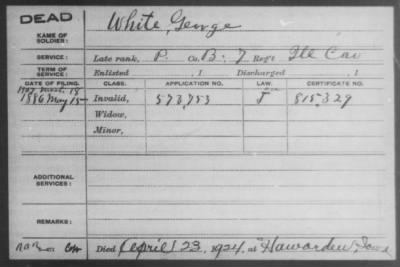 DEAD
NAME OF SOLDIER: White, George
SERVICE: Late rank, P Co. B. 7 Reg't Ill Cav
TERM OF SERVICE: Enlisted , 1 Discharged , 1
DATE OF FILING. CLASS. APPLICATION NO. LAW. CERTIFICATE NO.
18
1886 May 15 Invalid, 573,753 J 815,329
Widow,
Minor,
ADDITIONAL SERVICES:
REMARKS:
Died April 23, 1924, at Hawarden, Iowa